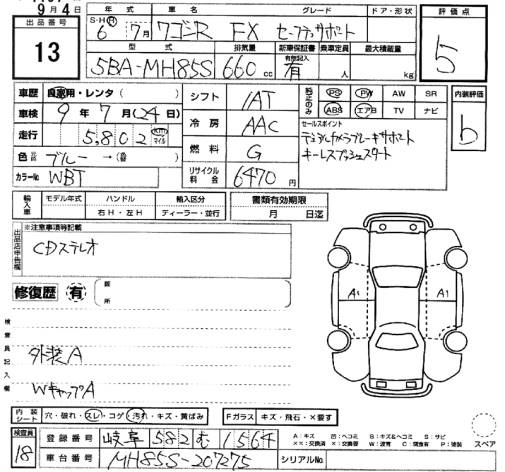 9月4日
出品番号
13
年式 車名 グレード ドア・形状
S・H・R
6年 7月 ワゴンR FX セーフティサポート
型式 排気量 新車保証書 乗車定員 最大積載量
有無記入
5BA-MH85S 660cc 有 人 kg
評価点
5
車歴 自家用・レンタ( )
車検 9年 7月(24日)
走行 5,802 km マイル
色 ブルー →( )
カラーNo WBT
シフト IAT
冷房 AAC
燃料 G
リサイクル料金 6470円
純正のみ
PS PW AW SR
ABS エアB TV ナビ
セールスポイント
デュアルカメラブレーキサポート
キーレスプッシュスタート
内装評価
b
輸入車
モデル年式 ハンドル 輸入区分
右H・左H ディーラー・並行
書類有効期限
月 日迄
出品店申告欄
※注意事項等記載
CDステレオ
修復歴 有
箇所
検査員記入欄
外装A
WキャップA
A1 A1
内装シート 穴・破れ・スレ・コゲ・汚れ・キズ・黄ばみ
Fガラス キズ・飛石・×要す
検査員
18
登録番号 岐阜 582 む 1564
車台番号 MH85S-207275
シリアルNo.
A:キズ U:ヘコミ B:キズ&ヘコミ S:サビ
××:交換済 ×:要交換 W:波有 C:腐食有 P:塗装
スペア